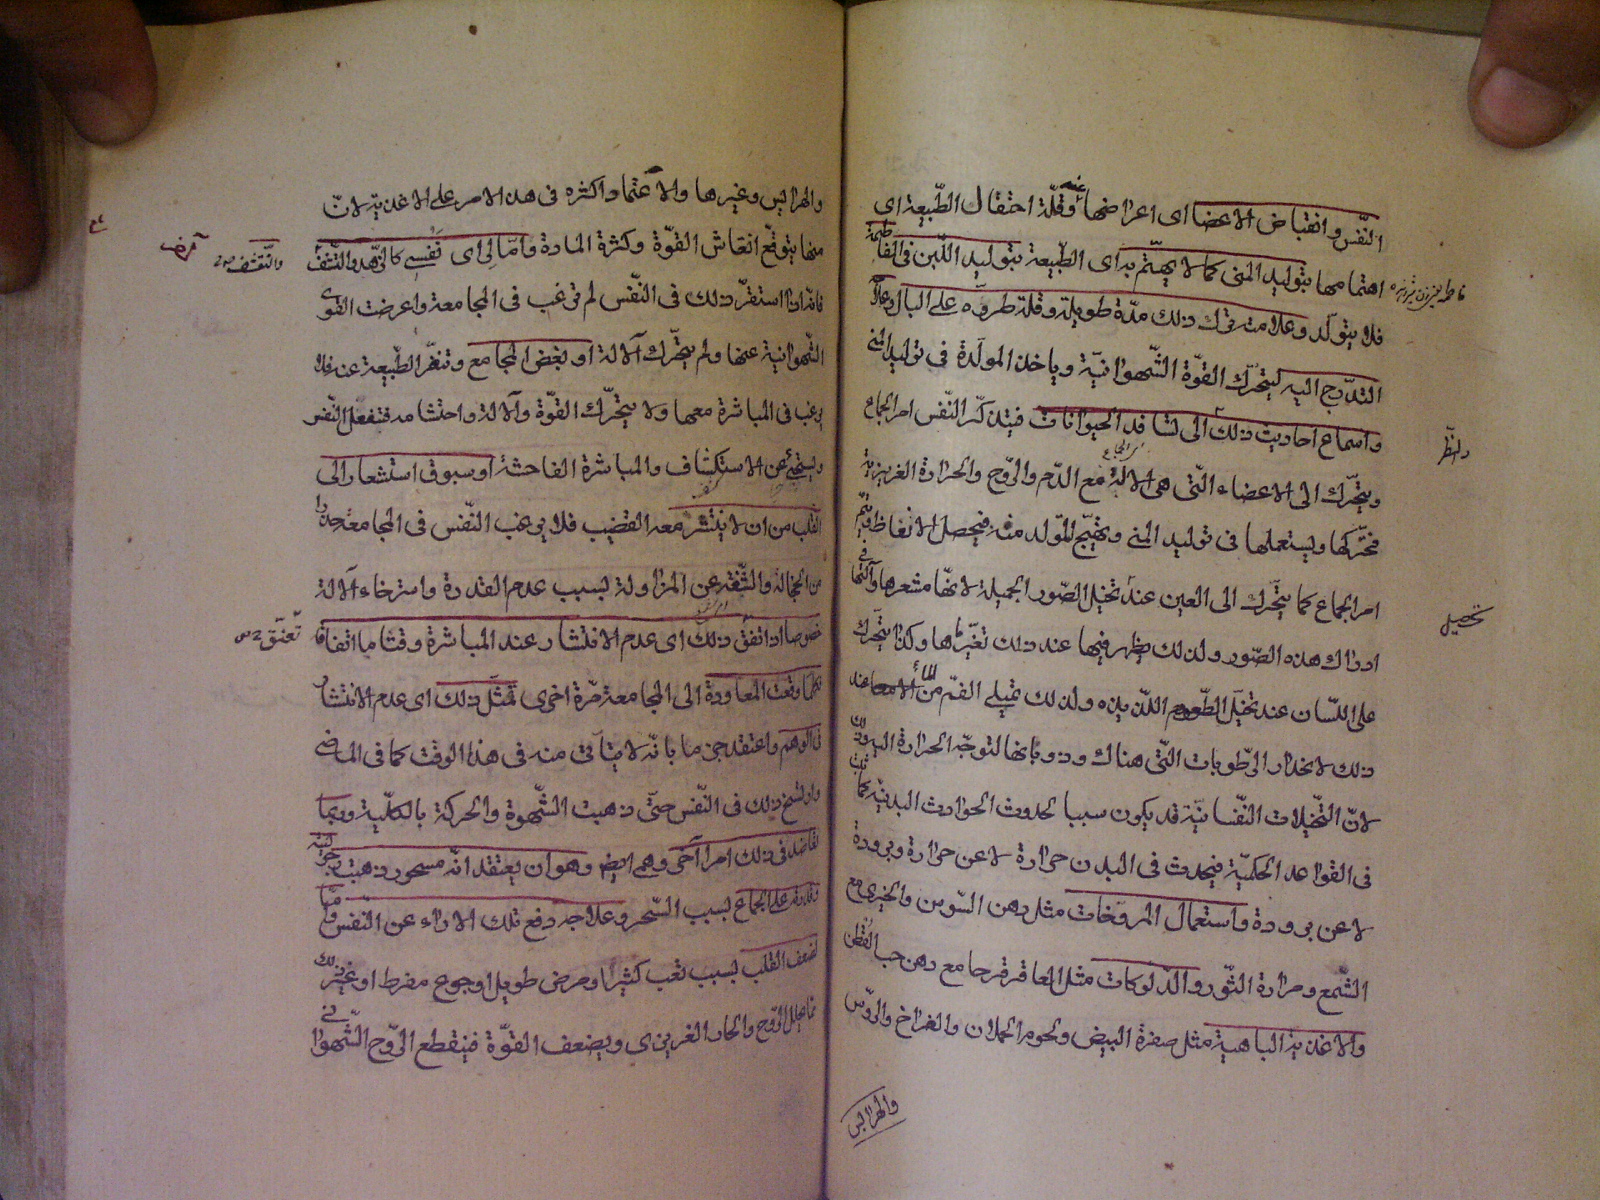 النّفس وانقباض الاعضا اى اعراضها عنه وقلّة احتفال الطّبيعة اى
اهتمامها بتوليد المنى كما لا يهتّم به اى الطّبيعة بتوليد اللّبن فى الفاطمة
فلا يتولّد وعلامته ترك ذلك مدّة طويلة وقلة طروّه على البال وعلاجه
التدّرج اليه ليتحّرك القوّة الشّهوانيّة وياخذ المولّدة فى توليد المنى
واسماع احاديث ذلك الى تسافد الحيوانات فيتذكّر النّفس امر الجماع
ويتحّرك الى الاعضاء الّتى هى الالة مع الدّم والرّوح والحرارة الغريزية
فتحّركها ويستعملها فى توليد المنى وتهيّج المّولد منه فيحصل الانعاظ
امر الجماع كما يتحّرك الى العين عند تخيل الصّور الجميلة لانهّا مشعرها وآلتها فى
ادراك هذه الصّور ولذلك يظهر فيها عند ذلك تغيّر ها وكذا يتحّرك
على اللسان عند تخيّل الطّعوم اللّذيذه ولذلك تميلے الفم من الماء عند
ذلك لانحدار الرّطوبات الّتى هناك وذوبانها لتوجّه الحرارة اليه وذلك
لانّ التخّيلات النّفسانيّة قد يكون سببا لحدوث الحوادث البدنيّة كما ثبت
فى القواعد الحكميّة فيحدث فى البدن حرارة لا عن حرارة وبرودة
لا عن برودة واستعمال المروّخات مثل دهن السّوسن والخيرى مع
الشّمع ومرارة الثّور والدّلوكات مثل العاقرقرحا مع دهن حب القطن
والاغذية الباهية مثل صفرة البيض ولحوم الحملان والفراخ والرّوس
والهرايس
والنّظر
تحصيل
والهرايس وغيرها والاعتماد اكثره فى هذا الامر على الاغذية لانّ
منها يتوقّع انعاش القوّة وكثرة المادة وامّا لِى اى نفسے كالزّهد والتّقشف
فانّه اذا استقرّ ذلك فى النّفس لم ترغب فى المجامعة واعرضت القوى
الشّهوانية عنها ولم يتحّرك آلالة او بغض المجامع وتنفّر الطّبيعة عنه فلا
يرغب فى المباشرة معها ولا يتحّرك القوّة وآلالة واحتشامه فتنفعل النّفس
ويستحى عن الاستكشاف والمباشرة الفاحشة او سبوق استشعار الى
القلب من ان لا ينتشر معه القضيب فلا يرغب النّفس فى المجامعة حذرا
من الخجالة والثّقة عن المزاولة بسبب عدم القدرة واسترخاء آلالة
خصوصا اذا اتفق ذلك اى عدم الانتشار عند المباشرة وقتا ما اتفاقا
فكلّما وقعت المعاودة الى المجامعة مرّة اخرى تمثّل ذلك اى عدم الانتشار
فى الوهم واعتقد جزما بانّه لا يتاتى منه فى هذا الوقت كما فى الماضى
واذا رسخ ذلك فى النّفس حتّى ذهبت الشّهوة والحركة بالكلّية وربما
تعاضد فى ذلك امرا آخر وهمى ايض وهو ان يعتقد انّه مسحور ذهبت
وقدرته على الجماع بسبب السّحر وعلاجه دفع تلك الاراء عن النّفس وامّا
لضعف القلب بسبب تعب كثير او مرض طويل او جوع مفرط او غير ذلك
مما يحلل الرّوح والحار الغريزى ويضعف القوّة فينقطع الرّوح الشّهوانى
والتّقشف